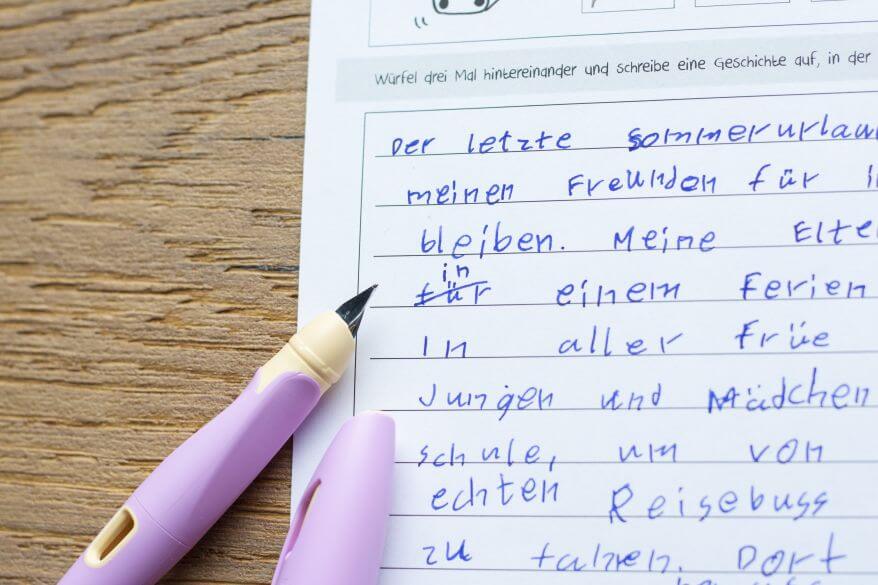 Würfel drei Mal hintereinander und schreibe eine Geschichte auf, in der
Der letzte Sommerurlau
meinen Freunden für i
bleiben. Meine Elte
in
für einem Ferien
In aller Früe
Jungen und Mädchen
schule, um von
echten Reisebuss
zu fahren. Dort